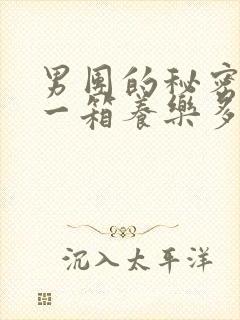 男团的秘密
一箱养乐多
沉入太平洋